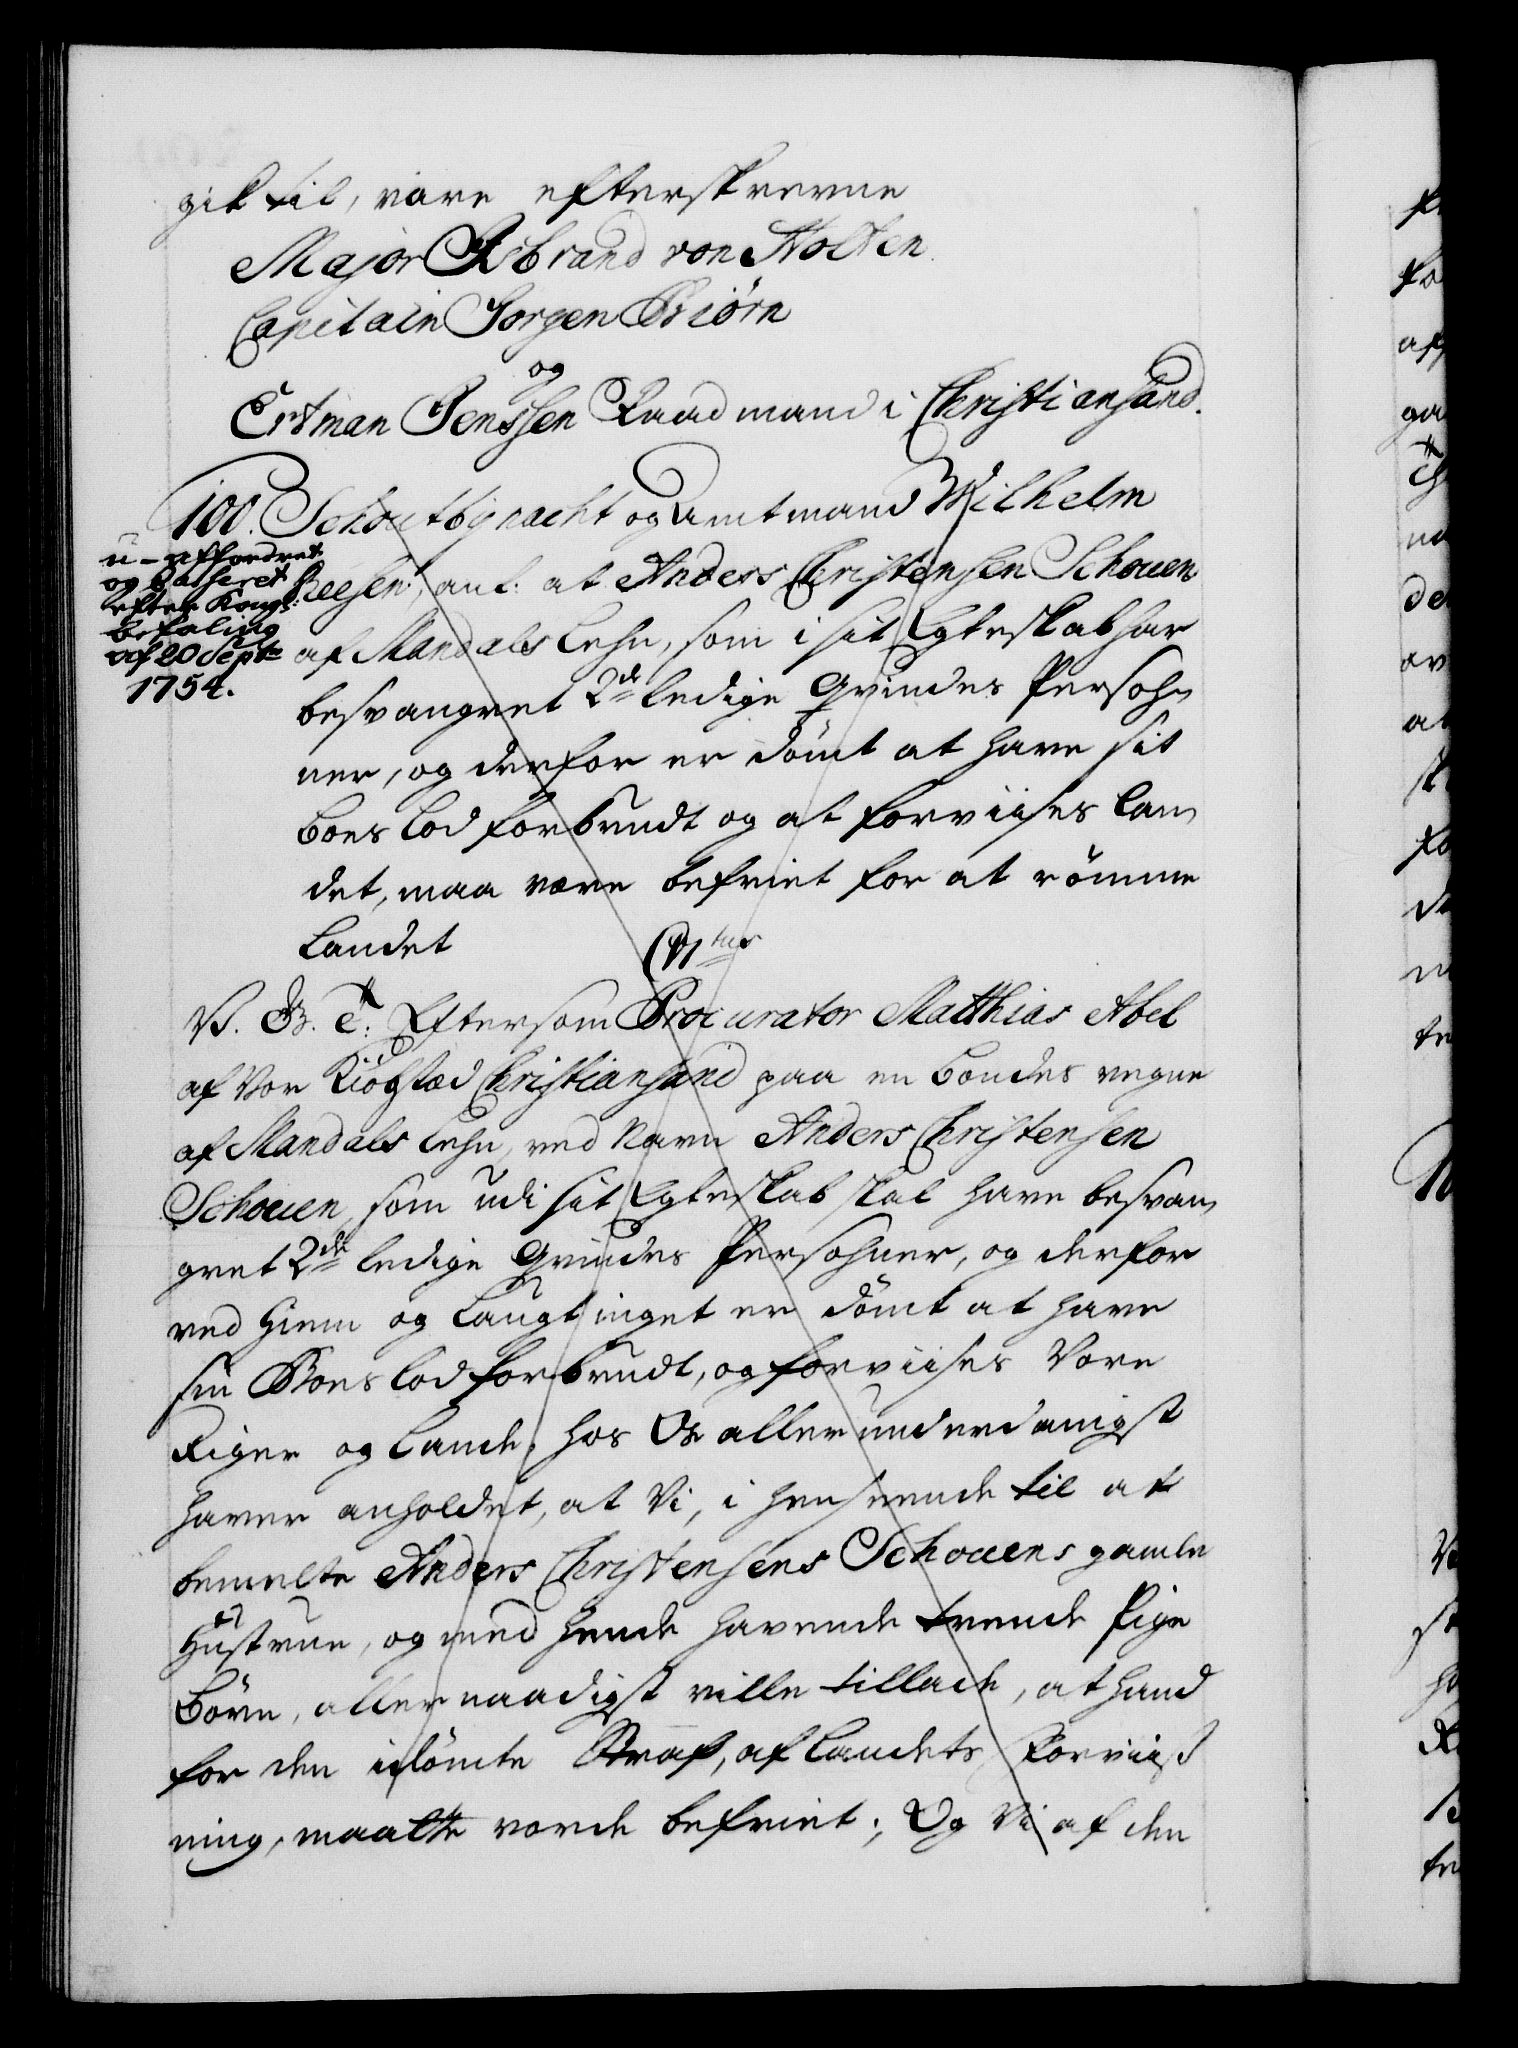 gik til, vare efterskrevne
Major Isbrand von Holten
Capitain Jorgen Biörn
og
Ertman Jenssen Raadmand i Christiansand.
100. Schoutbynacht og Amtmand Wilhelm
Reesen, anl: at Anders Christensen Schouen
af Mandals Lehn, som i sit Egteskab har
besvangret 2de ledige Qvindes Persoh¬
ner, og derfor er dömt at have sit
Boes Lod forbrudt og at forviises Lan¬
det, maa være befriet for at römme
Landet
u-affordret
og Casseret
efter Kongl:
befaling
af 20 Septr
1754.
V. G. T. Eftersom Procurator Matthias Abel
af Vor Kiöbstæd Christiansand paa en Bondes vegne
af Mandals Lehn, ved Navn Anders Christensen
Schouen, som udi sit Egteskab skal have besvan¬
gret 2de ledige Qvindes Persohner, og derfor
ved Hiem og Laugtinget er dömt at have
sin Boes Lod forbrudt, og forviises Vore
Riger og Lande, hos Os allerunderdanigst
haver anholdet, at Vi, i henseende til at
bemelte Anders Christensens Schouens gamle
Hustrue, og med hende havende trende Pige
Börn, allernaadigst ville tillade, at hand
for den idömte Straf, af Landets Forviis¬
ning, maatte vorde befriet; Og Vi af den